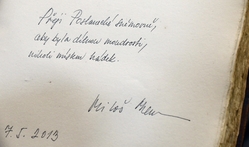 Přeji Poslanecké sněmovně,
aby byla dílnou moudrosti,
nikoli místem hádek.
Miloš Zeman
7. 5. 2013